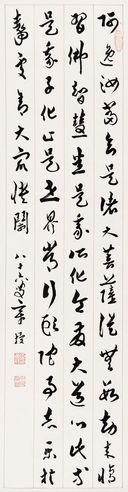 阿逸汝當知是諸大菩薩從無數劫来脩
習佛智慧悉是我所化令發大道心此等
是我子依止是世界常行頭陀事志樂於
靜處捨大眾憒鬧 八十六叟